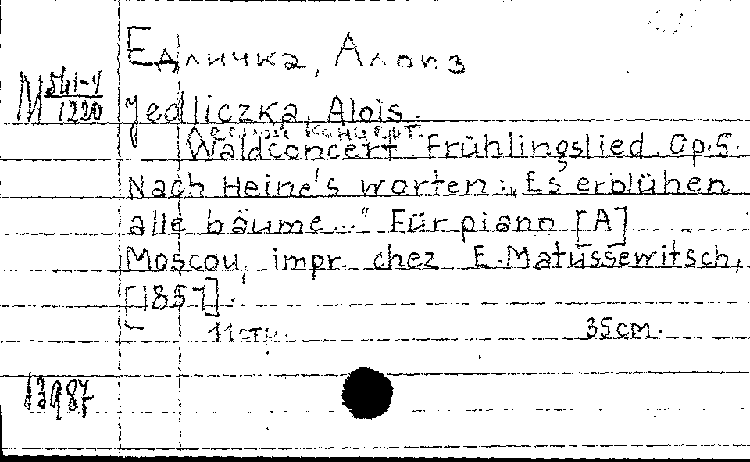 Едличка, Алоиз
М 541-4/1220
Jedliczka, Alois.
Лесной концерт.
Waldconcert Frühlingslied. Op. 5.
Nach Heine's worten: „Es erblühen
alle bäume..." Für piano [A]
Moscou, impr. chez E. Matussewitsch,
[1857].
11 стр. 35 cm.
13987